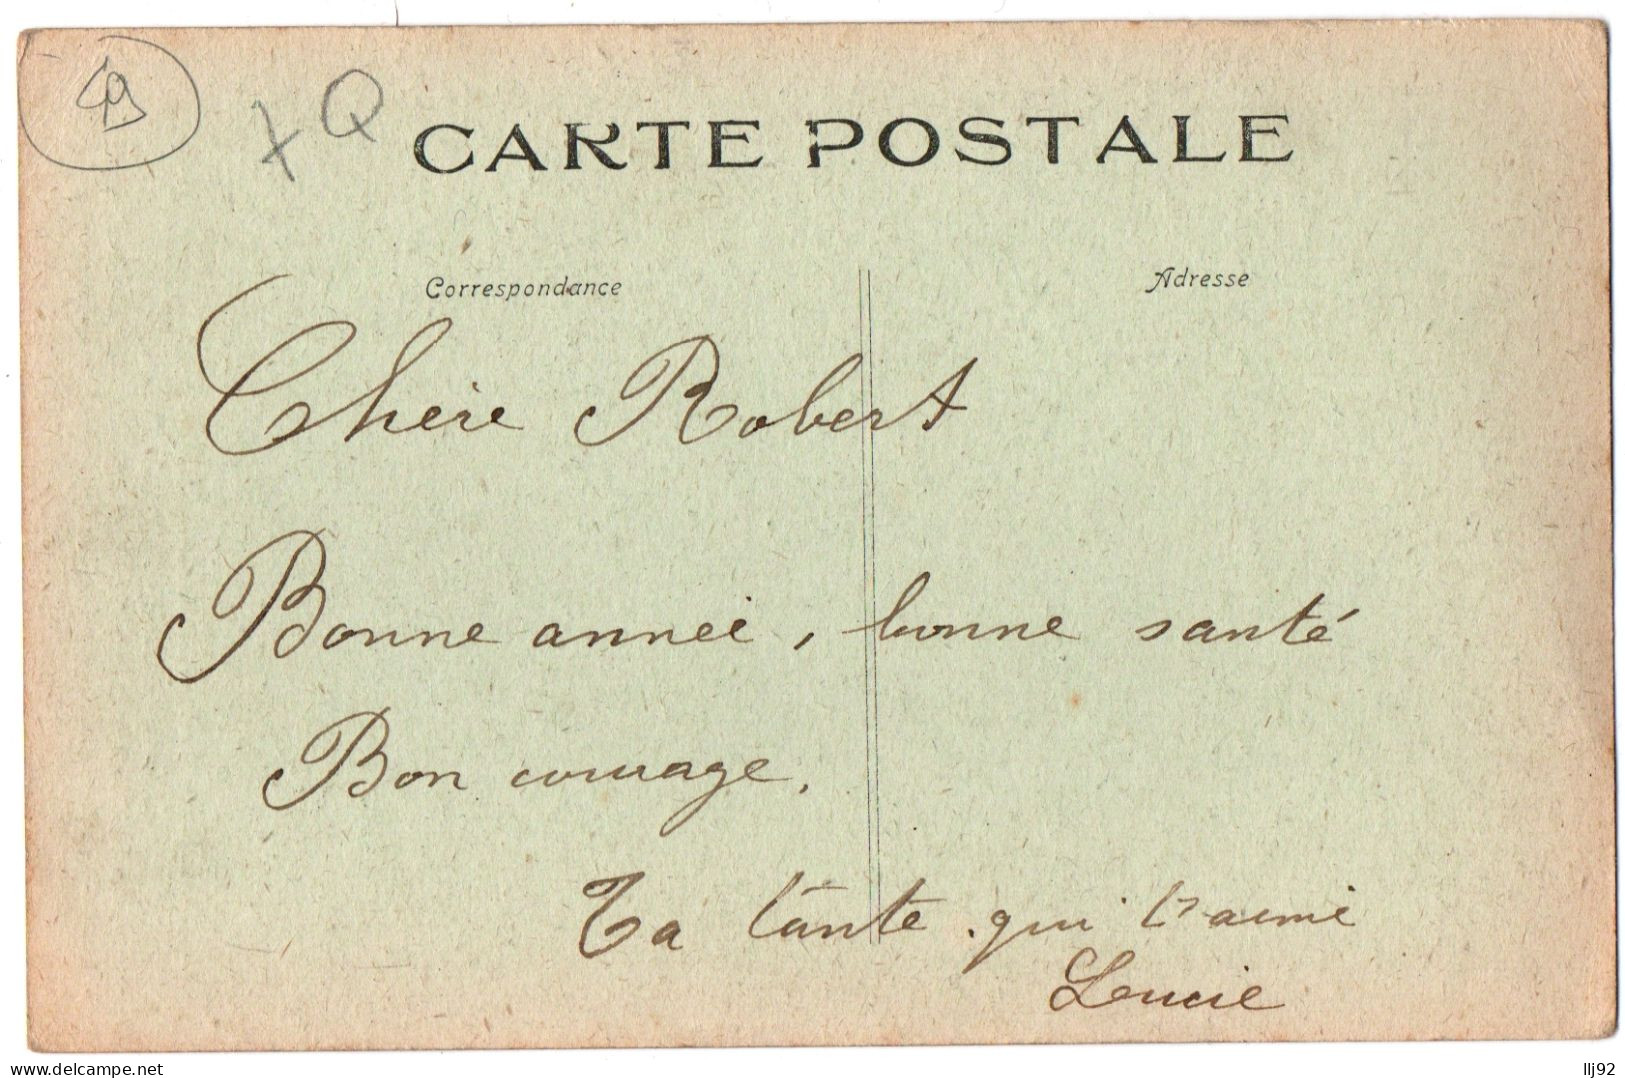 49
X Q
CARTE POSTALE
Correspondance
Adresse
Chère Robert
Bonne année, bonne santé
Bon courage.
Ta tante qui t'aime
Lucie
www.delcampe.net
llj92